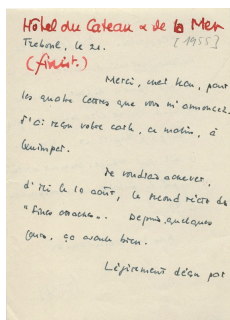 Hôtel du Coteau & de la Mer
Tréboul, le 21.
[1955]
(finist.)
Merci, cher , pour
les quatre que vous m'annoncez.
J'ai reçu votre carte, ce matin, à
Quimper.
Je voudrais achever,
d'ici le 10 août, le second récit de
". Depuis quelques
jours, ça avance bien.
Légèrement déçu par